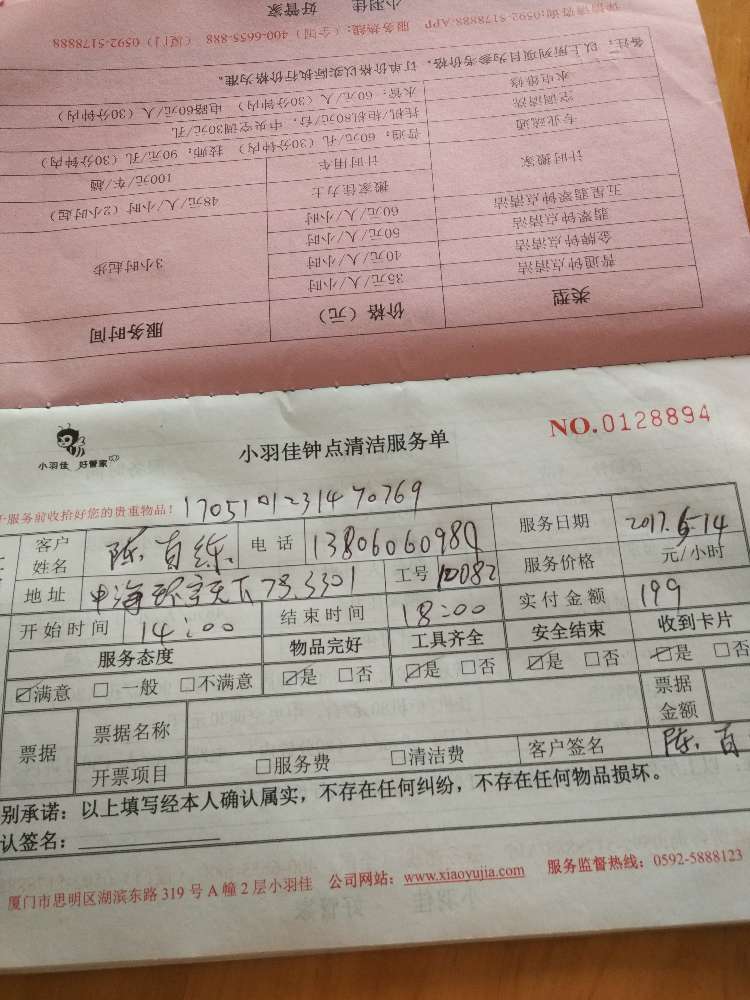 小羽佳 好管家
详情请咨询:0592-5178888.APP 服务热线:(全国)400-6655-888 (厦门)0592-5178888
备注:以上所列项目为参考价格,订单价格以实际执行价格为准。
水电维修 水管:60元/人(30分钟内) 电路60元/人(30分钟内)
空调清洗 挂机/柜机80元/台,中央空调30元/孔
专业疏通 普通:60元/孔(30分钟内) 技师:90元/孔(30分钟内)
计时搬家 计时用车 100元/车/趟
搬家佳力士 48元/人/小时(2小时起)
五星翡翠钟点清洁 60元/人/小时
翡翠钟点清洁 50元/人/小时
金牌钟点清洁 40元/人/小时
普通钟点清洁 35元/人/小时
3小时起步
类型 价格(元) 服务时间
小羽佳 好管家
小羽佳钟点清洁服务单
NO.0128894
于服务前收拾好您的贵重物品! 170510123147 0769
客户姓名 陈 电话 13806060989 服务日期 2017.6.14
地址 中海 天下78.3301 工号 10082 服务价格 元/小时
开始时间 14:00 结束时间 18:00 实付金额 199
服务态度 物品完好 工具齐全 安全结束 收到卡片
☑满意 □一般 □不满意 ☑是 □否 ☑是 □否 ☑是 □否 ☑是 □否
票据 票据名称 票据金额
开票项目 □服务费 □清洁费 客户签名 陈
别承诺:以上填写经本人确认属实,不存在任何纠纷,不存在任何物品损坏。
认签名:
厦门市思明区湖滨东路319号A幢2层小羽佳 公司网站:www.xiaoyujia.com 服务监督热线:0592-5888123